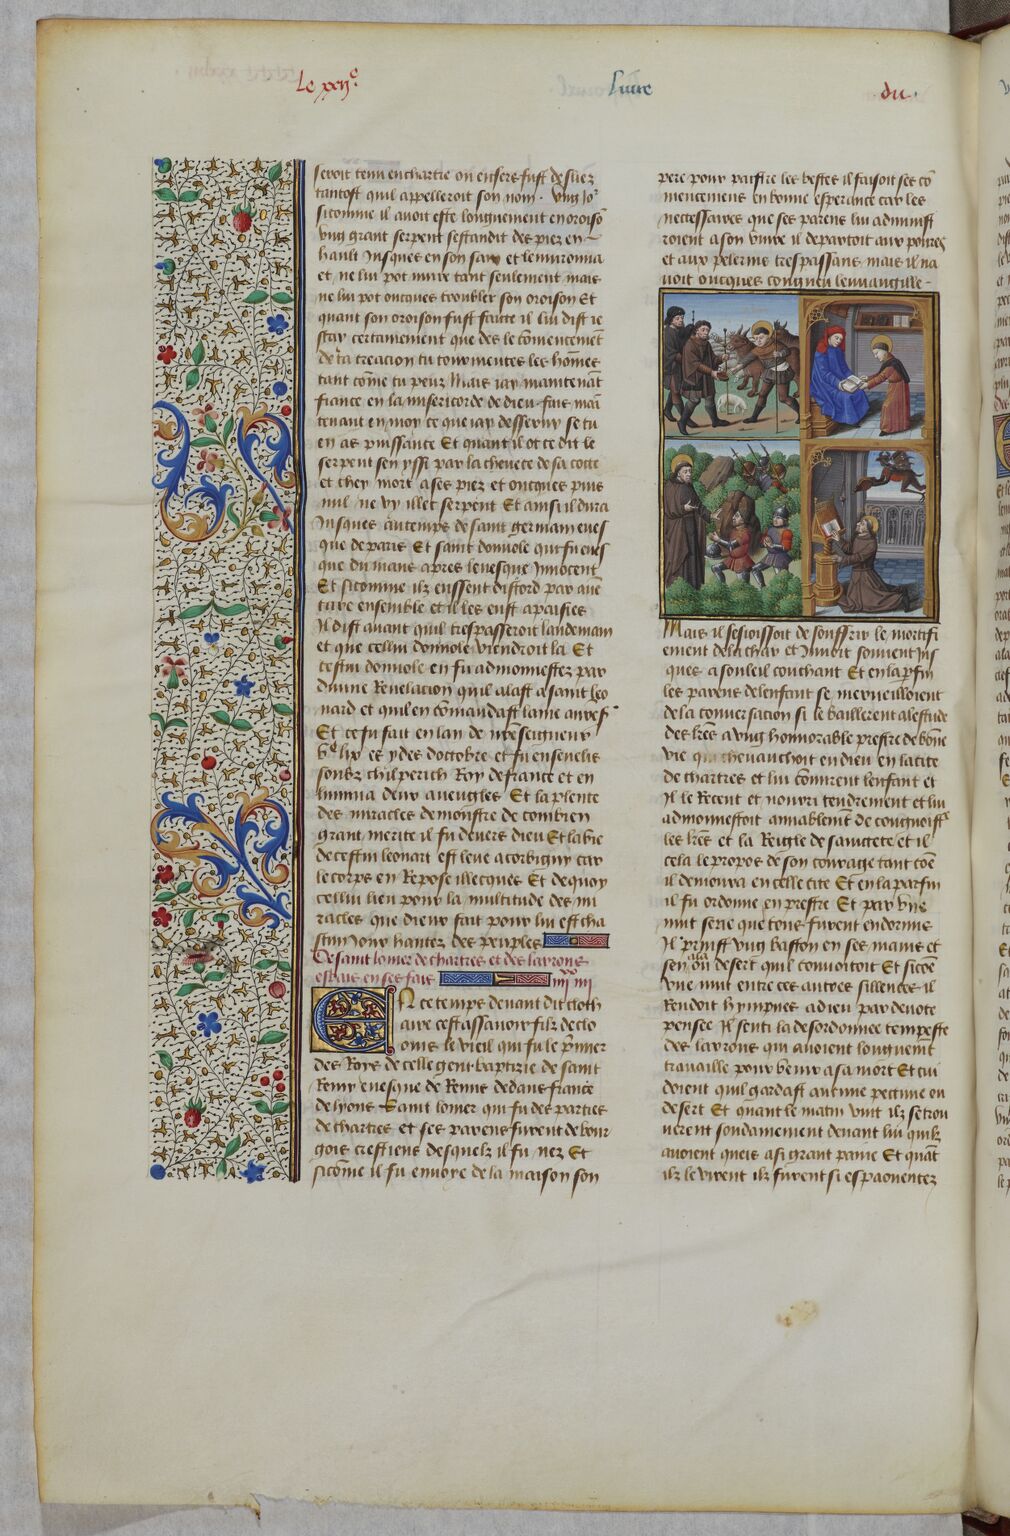 Le xxije
liure
du
seroit tenu en chartre ou en fers fust desliez
tantost quil appelleroit son nom. Ung io2
sicomme il auoit este longuement en oroiso
vng grant serpent sestandit des piez en
hault Jusques en son sain et lenuironna
et ne lui pot nuire tant seulement mais
ne lui pot oncques troubler son oroison Et
quant son oroison fust faicte il lui dist ie
scay certainement que des le comencement
de ta creacion tu tourmentes les homes
tant come tu peuz Mais iay maintenant
fiance en la misericorde de dieu fais main
tenant en moy ce que iay desseruy se tu
en as puissance Et quant il ot ce dit le
serpent sen yssi par la cheuece de sa cotte
et chey mort a ses piez et oncques puis
nul ne vy illec serpent Et ainsi il dura
Jusques au temps de saint germain eues
que de paris Et saint donnole qui fu eues
que du mans apres leuesque Innocent
Et sicomme ilz eussent discord par auen
ture ensemble et il les eust apaisies
Il dist auant quil trespasseroit landemain
et que cellui donnole viendroit la Et
cestui donnole en fu admonnestez par
diuine Reuelacion quil alast a saint leo
nard et quil en comandast lame
Et ce fu fait en lan de nre seigneur
vc lix es ydes doctobre et fu enseuelis
soubz chilperich Roy de france et en
lumina deux aueugles Et la plente
des miracles demonstre de combien
grant merite il fu deuers dieu Et la vie
de cestui leonart est leue a corbigny car
le corps en Repose illecques Et de quoy
cellui lieu pour la multitude des mi
racles que dieux fait pour lui est cha
scun iour hantez des peuples
De saint lomer de chartres et des larrons
espars en ses fais iiiixx iiii
En ce temps deuant dit cloth
aire cest assauoir filz de clo
ouis le vieil qui fu le pmier
des Roys de celle gent baptizie de saint
Remy euesque de Reins dedans france
de lyons Saint lomer qui fu des parties
de chartres et ses parens furent de bour
gois crestiens desquelz il fu nez Et
sicome il fu enuoye de la maison son
pere pour paistre les bestes il faisoit ses co
mencemens en bonne esperance car les
necessaires que ses parens lui adminis
roient a son viure il departoit aux poures
et aux pelerins trespassans mais il na
uoit oncques congneu leuuangille
Mais il sesioissoit de souffrir le mortifi
ement de la char et Junoit souuent Jus
ques a souleil couchant Et en la pfin
les parens de lenfant se merueilloient
de la conuersacion si le baillerent a lestude
des lres a vng honnorable prestre de bone
vie qui cheuauchoit en dieu en la cite
de chartres et lui comirent lenfant et
Il le Recent et nourri tendrement et lui
admonnestoit amiablemt de congnoistre
les lres et la Reigle de sainctete et il
cela le propos de son courage tant come
il demoura en celle cite Et en la parfin
il fu ordonne en prestre Et par vne
nuit serie que tous furent endormis
Il prinst vng baston en ses mains et
sen ala ou desert quil conuoitoit Et sicoe
vne nuit entre ces autres sillences il
Rendoit hympnes a dieu par deuote
pensee Il senti la desordonnee tempeste
des larrons qui auoient longuemt
trauaille pour venir a sa mort Et cui
doient quil gardast aucune pecune ou
desert Et quant le matin vint ilz se trou
uerent soudainement deuant lui quilz
auoient quis a si grant paine Et quant
ilz le virent ilz furent si espaouentez